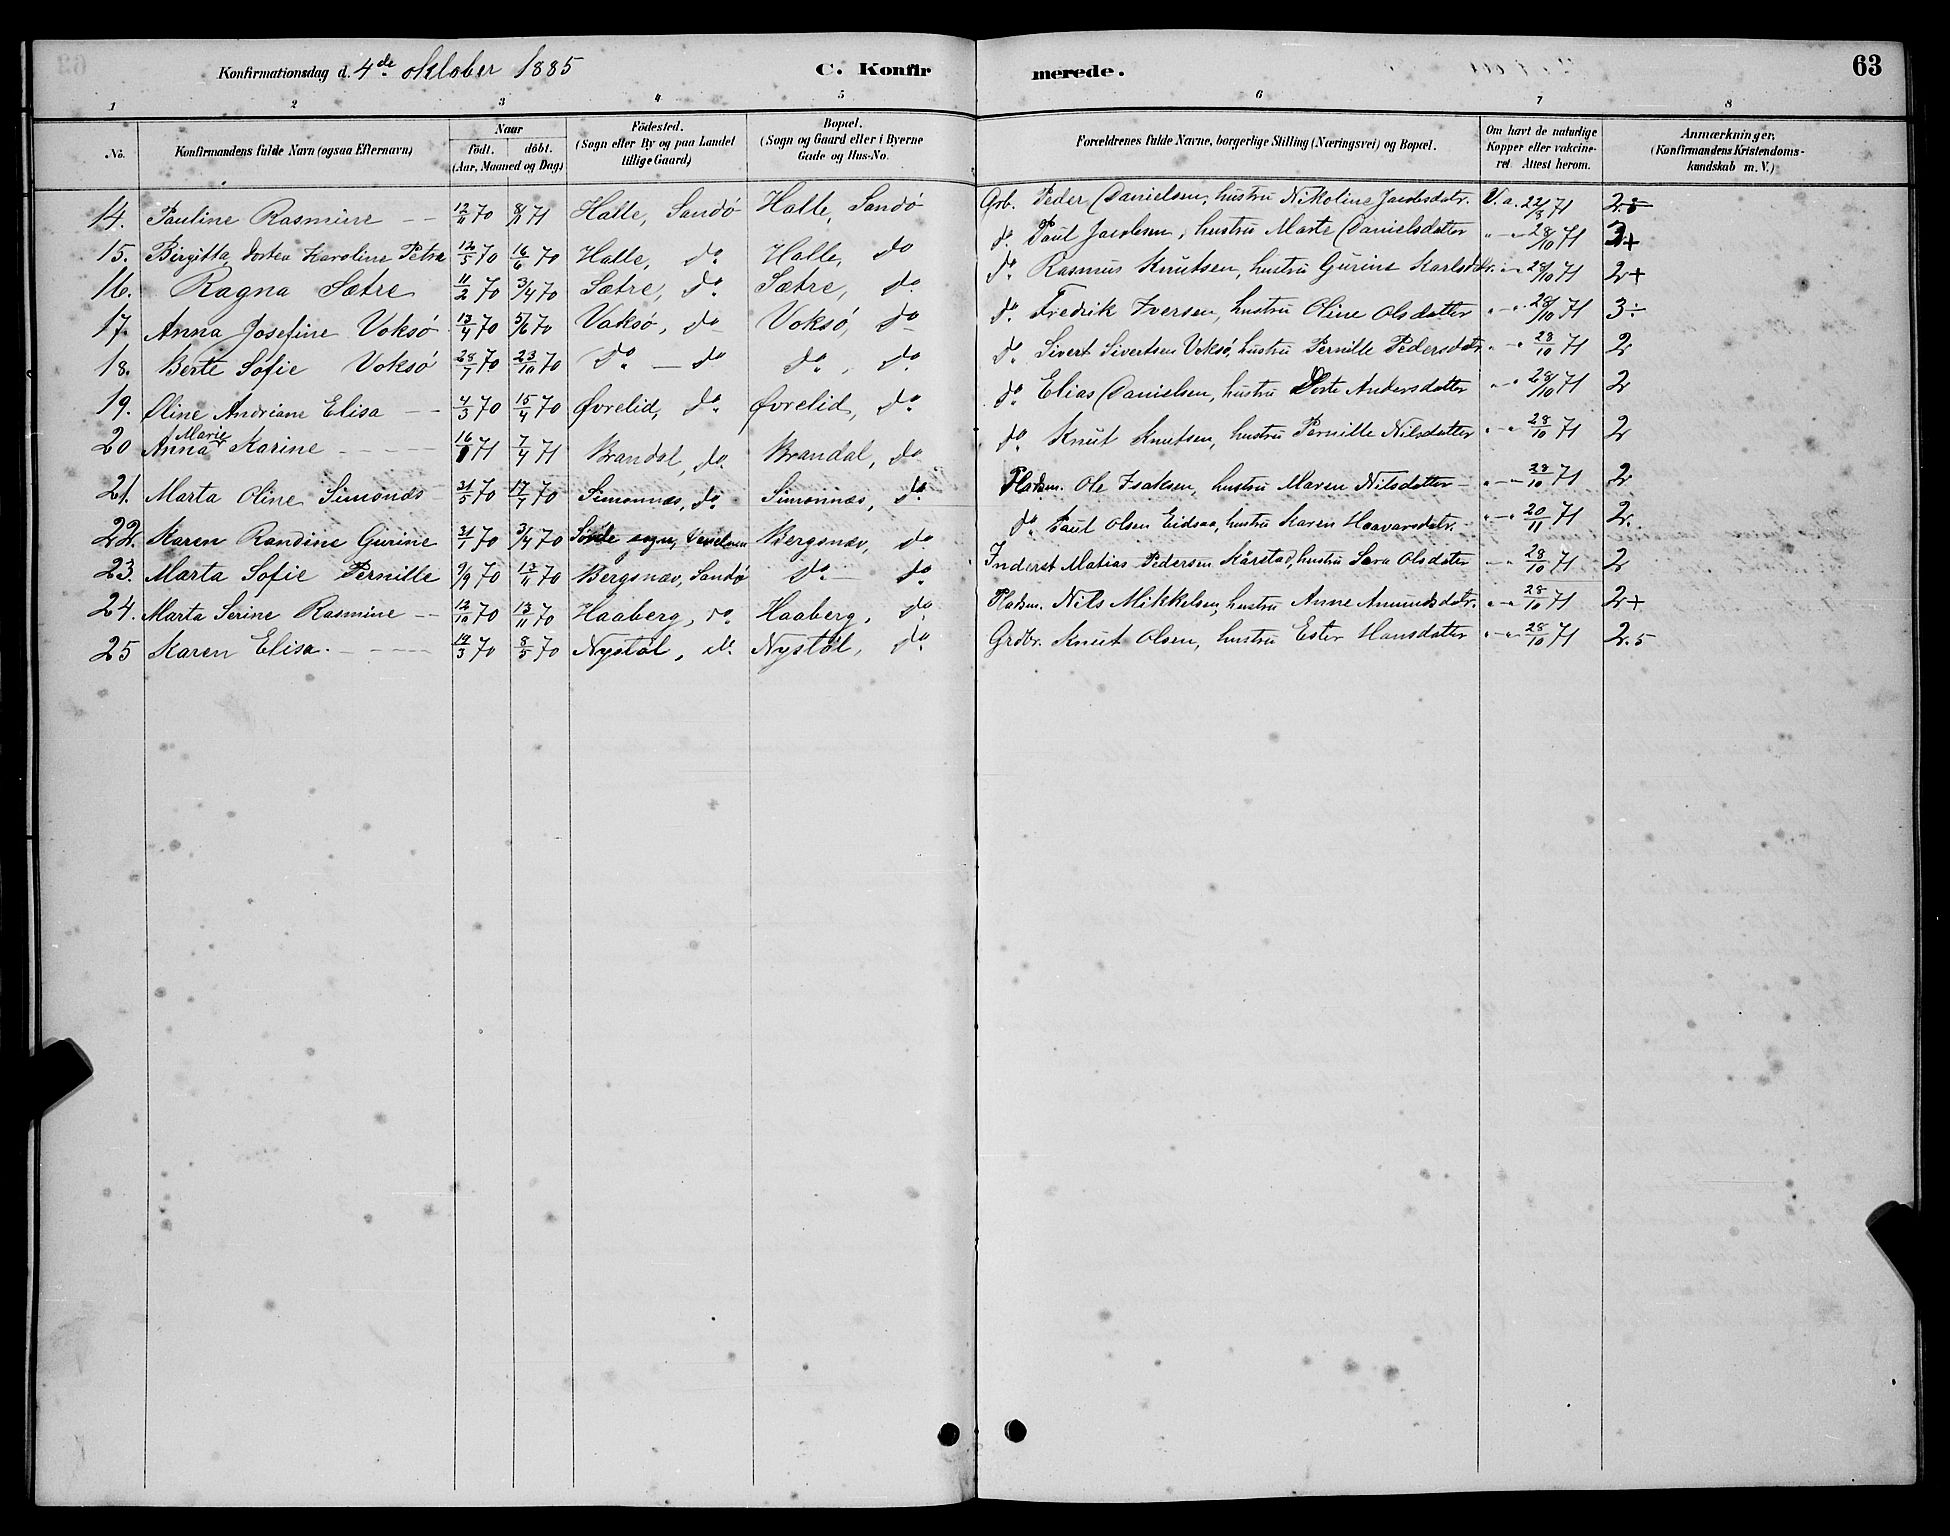 Konfirmationsdag d. 4de oktober 1885 C. Konfirmerede. 63
1 2 3 4 5 6 7 8
No. Konfirmandens fulde Navn (ogsaa Efternavn) Naar födt. döbt. (Aar, Maaned og Dag) Födested. (Sogn efter By og paa Landet tillige Gaard) Bopæl. (Sogn og Gaard eller i Byerne Gade og Hus-No. Forældrenes fulde Navne, borgerlige Stilling (Næringsvei) og Bopæl. Om havt de naturlige Kopper eller vakcineret Attest herom. Anmærkninger. (Konfirmandens Kristendomskundskab m. V.)
14. Pauline Rasmine — — 70 8/1 71 Halle, Sandö Halle, Sandö Grb. Peder Danielsen, hustru Nikoline Jacobsdatr. V. a. 22/8 71 2.5
15. Birgitta Dortea Karoline Petra 12/5 70 16/6 70 Halle, do. Halle, do do. Paul Jacobsen, hustru Marte Danielsdatter " — " 28/10 71 3+
16. Ragna Sætre 11/2 70 3/4 70 Sætre, do. Sætre, do. do. Rasmus Knutsen, hustru Gurine Karlsdtr. " — " 28/10 71 2+
17. Anna Josefine Voksö 13/4 70 5/6 70 Voksö, do Voksö, do do. Fredrik Iversen, hustru Oline Olsdatter " — " 28/10 71 3÷
18. Berte Sofie Voksö 28/7 70 23/10 70 do — do do., do. do. Sivert Sivertsen Voksö, hustru Pernille Pedersdatr. " — " 28/10 71 2
19. Oline Andriane Elisa — — 4/3 70 15/4 70 Øvrelid, do. Øvrelid, do. do. Elias Danielsen, hustru Dorte Andersdatter " — " 28/10 71 2
20 Anna Marie Karine — — — 16/1 71 7/4 71 Brandal, do. Brandal, do do. Knut Knutsen, hustru Pernille Nilsdatter " — " 28/10 71 2
21. Marta Oline Simonds 31/5 70 17/7 70 Simonnæs, do. Simonnæs, do. Pladsm. Ole Isaksen, hustru Maren Nilsdatter — " — " 28/10 71 2
22. Karen Randine Gurine 31/1 70 3/4 70 Sönde sogn, Bergsnæv, do. do. Paul Olsen Eidsaa, hustru Karen Haavarsdatr. " — " 20/11 71 2.
23. Marta Sofie Pernille 9/9 70 13/11 70 Bergsnæv, Sandö do. — do. Inderst Matias Pedersen Kårstad, hustru Sara Olsdatter — " 28/10 71 2
24. Marta Serine Rasmine — 12/10 70 13/11 70 Haaberg, do. Haaberg, do. Pladsm. Nils Mikkelsen, hustru Anne Amundsdatr. " — " 28/10 71 2+
25 Karen Elisa. — — — 12/3 70 8/5 70 Nystöl, do. Nystöl, do. Grdbr. Knut Olsen, hustru Ester Hansdatter " — " 28/10 71 2.5